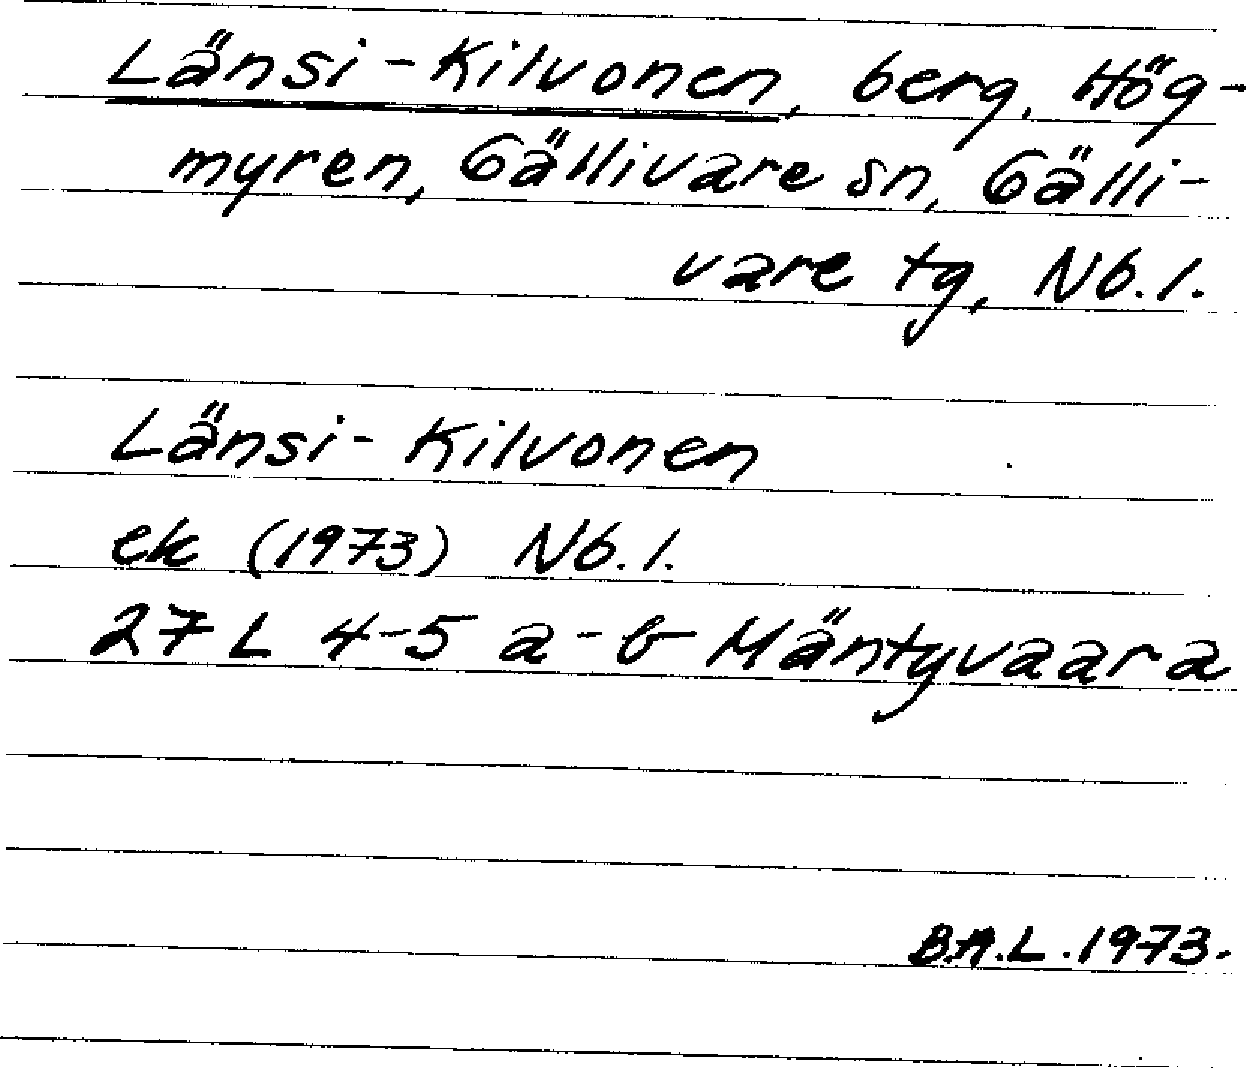 Länsi-Kilvonen, berg, Hög-
myren, Gällivare sn, Gälli-
vare tg, Nb.l.
Länsi-Kilvonen
ek (1973) Nb.l.
27 L 4-5 a-b Mäntyvaara
B.A.L. 1973.